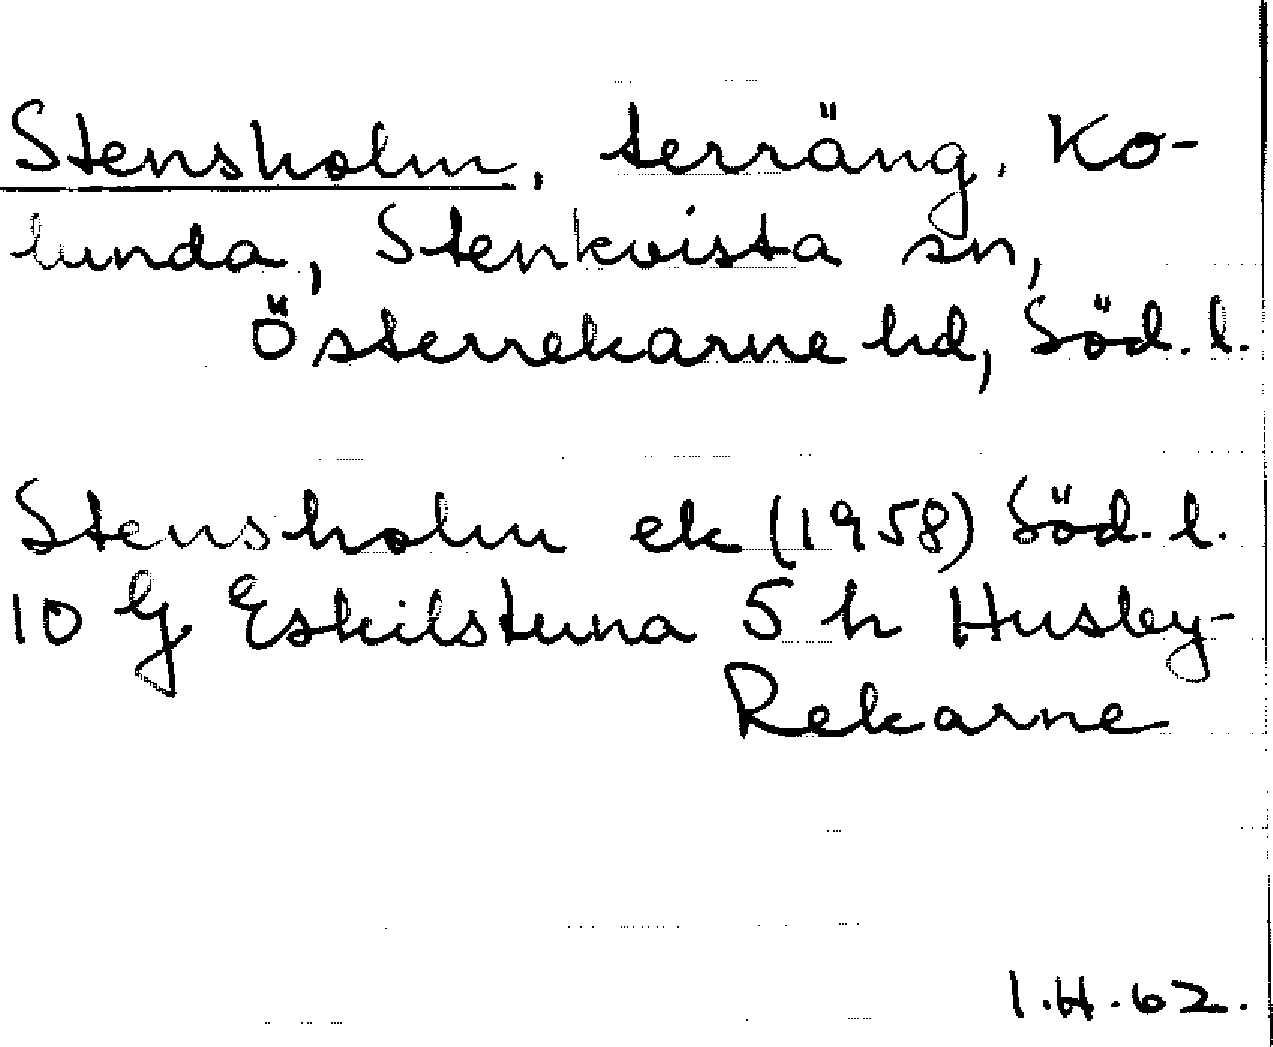 Stensholm, terräng, Ko-
lunda, Stenkvista sn,
Österrekarne hd, Söd. l.
Stensholm ek (1958) Söd. l.
10 G Eskilstuna 5 h Husby-
Rekarne
I.H. 62.